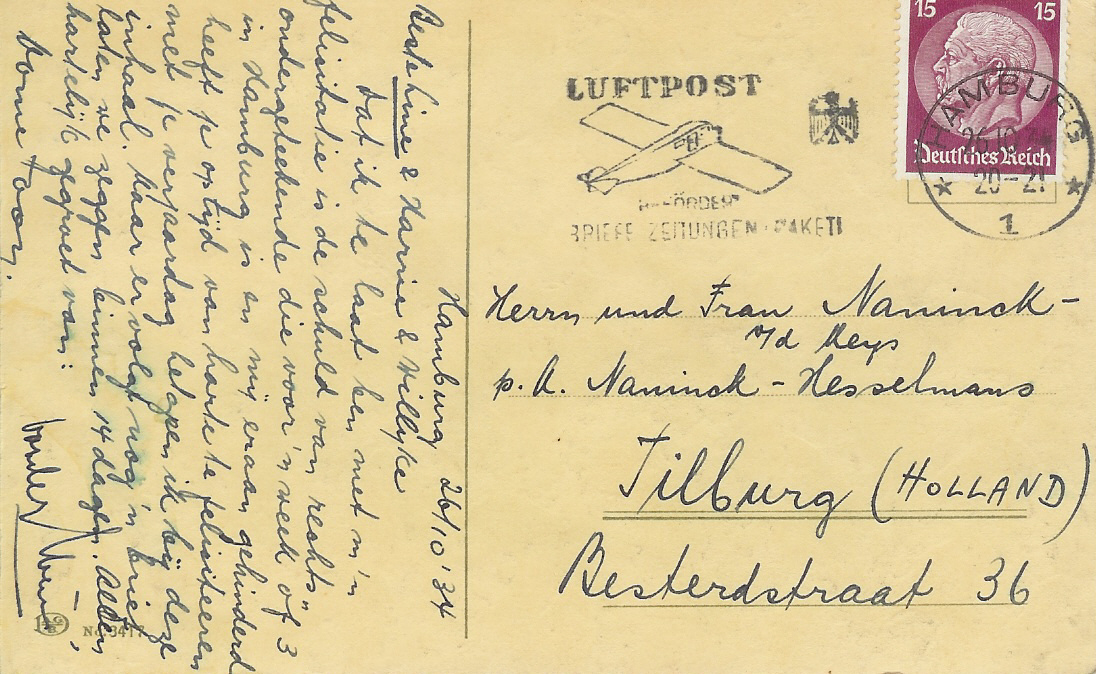 Hamburg 26/10 '34
Beste Line & Harrie & Willyke
Dat ik te laat ben met m'n
felicitatie is de schuld van "rechts"
ondergetekende die voor 'n week of 3
in Hamburg is en mij eraan gehinderd
heeft je op tijd van harte te feliciteeren
met je verjaardag hetgeen ik bij deze
inhaal. Maar er volgt nog 'n brief
laten we zeggen binnen 14 dagen. Allen,
hartelijk gegroet van:
Toon.
LUFTPOST
BEFÖRDERT
BRIEFE ZEITUNGEN PAKETE
15 15
Deutsches Reich
HAMBURG
26.10.34
20-21
1
Herrn und Frau Naninck-
v/d Meys
p.A. Naninck-Hesselmans
Tilburg (HOLLAND)
Besterdstraat 36
No. 3417